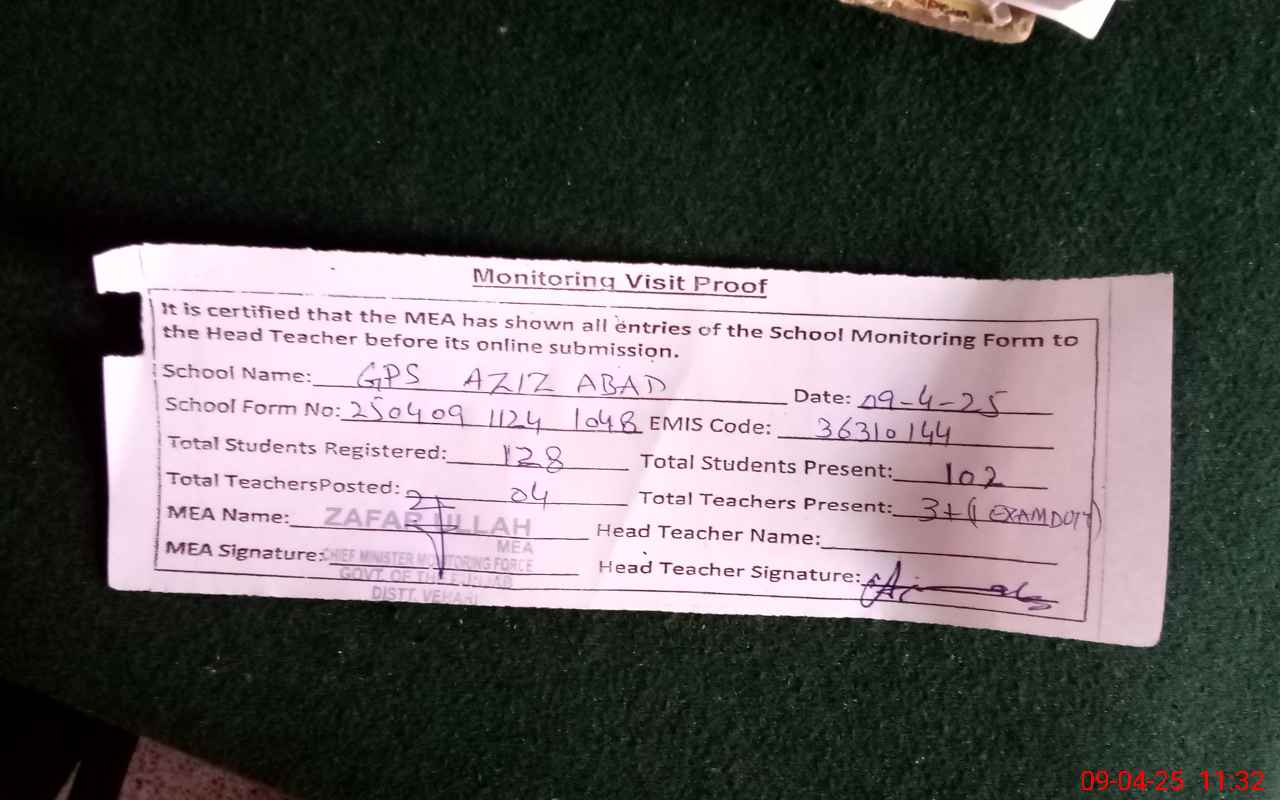 Monitoring Visit Proof
It is certified that the MEA has shown all entries of the School Monitoring Form to
the Head Teacher before its online submission.
School Name: GPS AZIZ ABAD Date: 09-4-25
School Form No: 250409 1124 1048 EMIS Code: 36310144
Total Students Registered: 128 Total Students Present: 102
Total TeachersPosted: 04 Total Teachers Present: 3+(1 EXAM DUTY)
MEA Name: ZAFAR ULLAH Head Teacher Name:
MEA
MEA Signature: CHIEF MINISTER MONITORING FORCE Head Teacher Signature:
GOVT. OF THE PUNJAB
DISTT. VEHARI
09-04-25 11:32